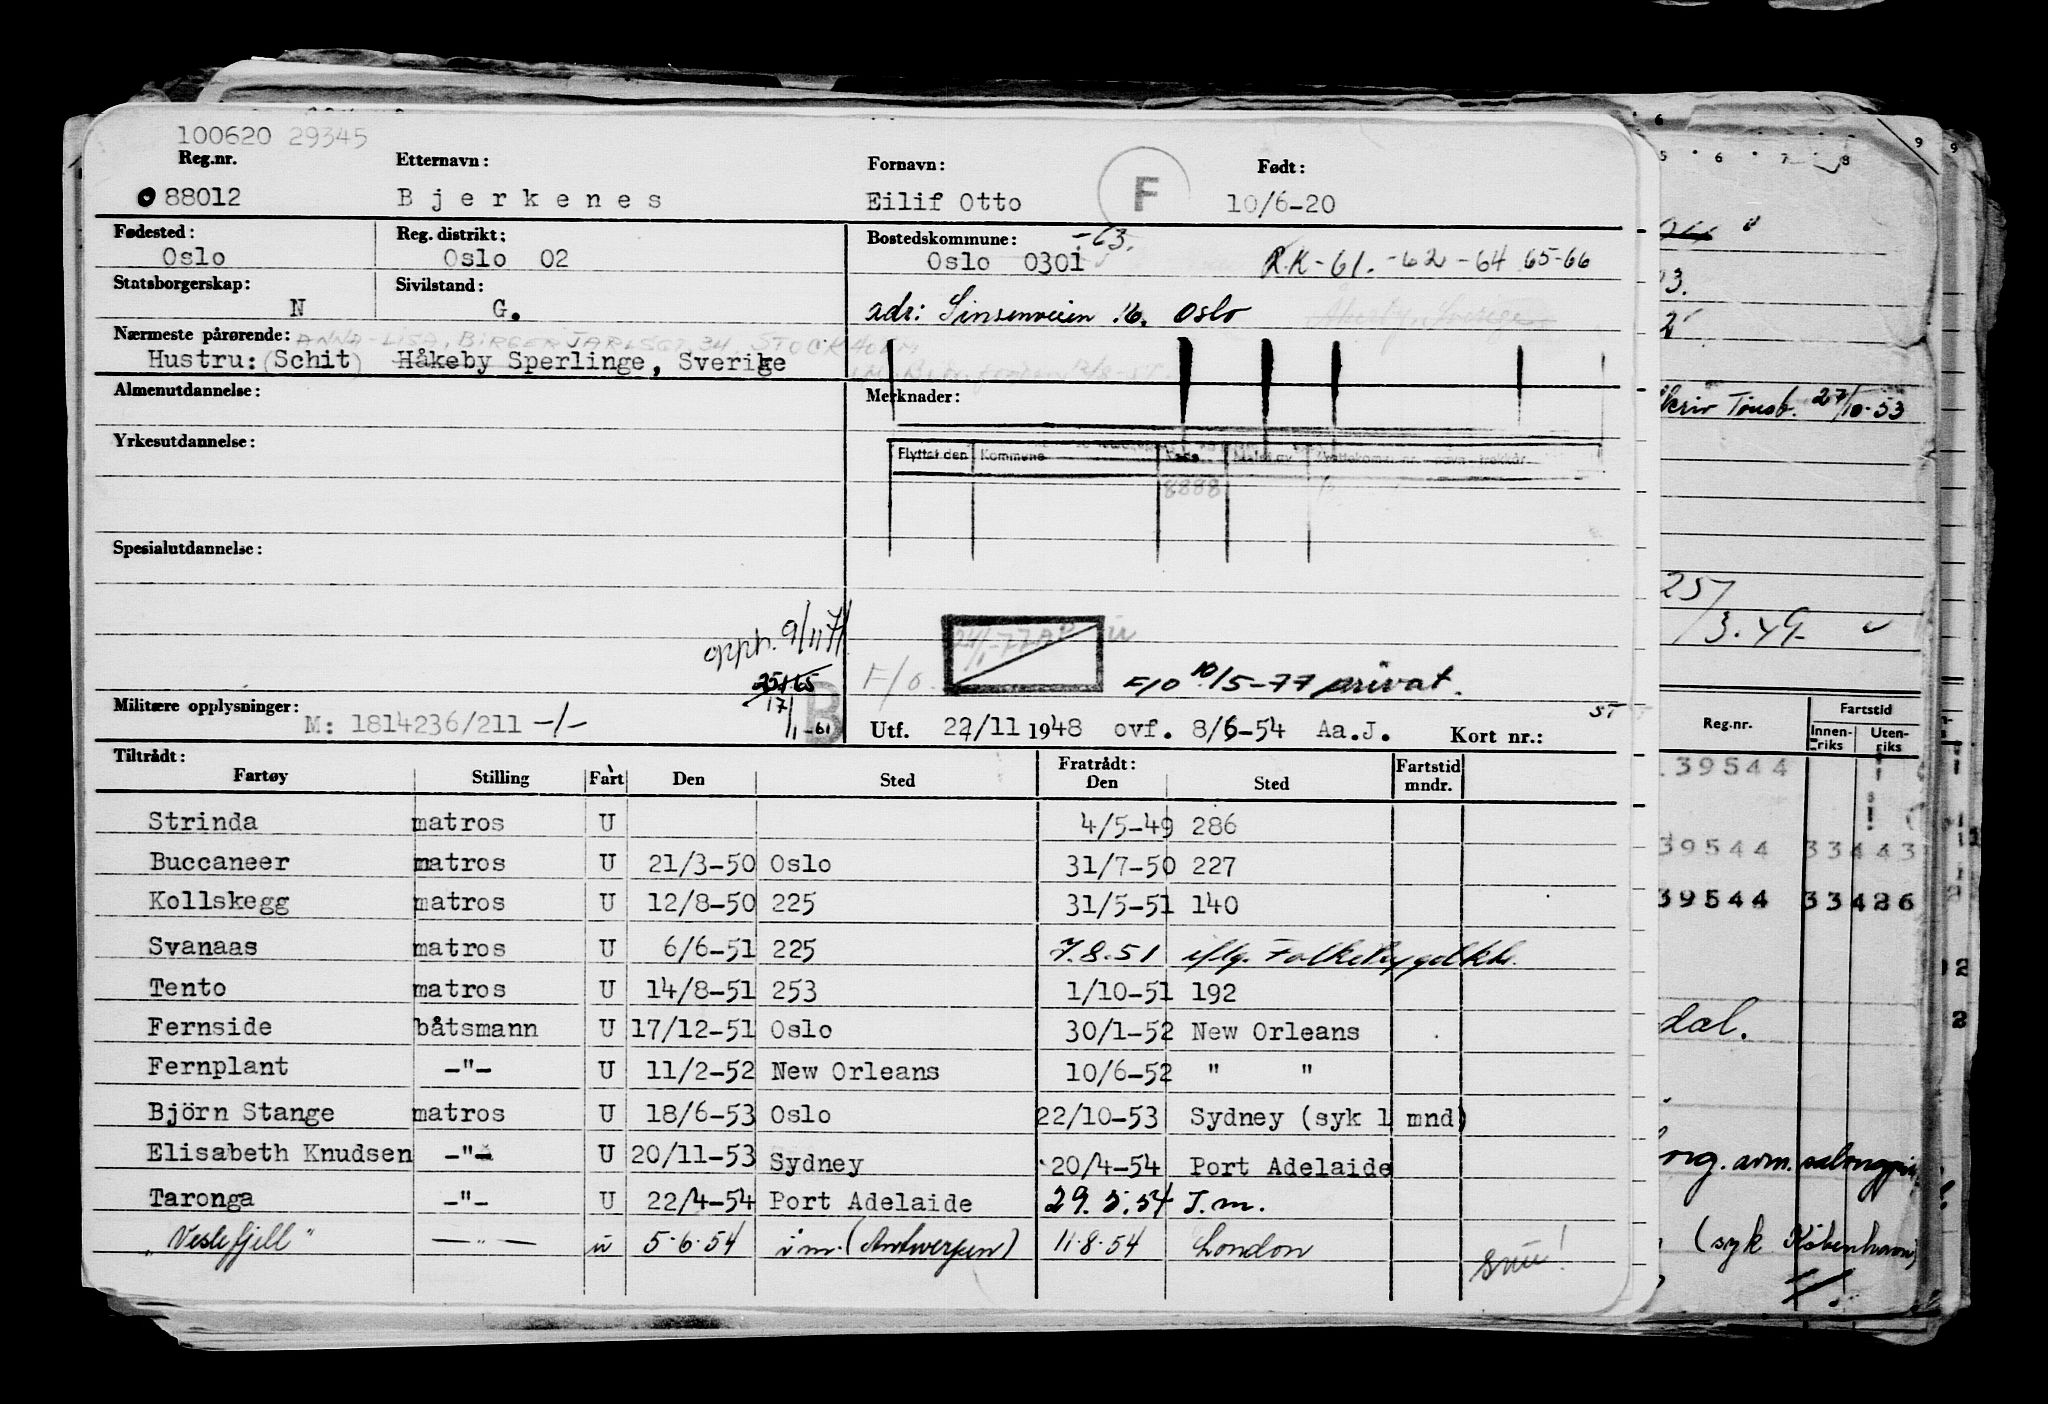 100620 29345
Reg.nr. Etternavn: Fornavn: F Født:
88012 Bjerkenes Eilif Otto 10/6-20
Fødested: Reg. distrikt: Bostedskommune: -63.
Oslo Oslo 02 Oslo 0301 R.K-61. -62 -64 65-66
Statsborgerskap: Sivilstand:
N G. adr: Sinsenveien 16. Oslo
Nærmeste pårørende: ANNA-LISA, BIRGER JARLSGT. 34, STOCKHOLM
Hustru: (Schit) Håkeby Sperlinge, Sverige
Almenutdannelse: Merknader:
Yrkesutdannelse:
Flyttet den Kommune
8888
Spesialutdannelse:
opph. 9/11 71
24/1-77
F/o. F/o 10/5-77 privat.
25/1 65
17/1-61 B
Militære opplysninger: ST
M: 1814236/211 -/- Utf. 22/11 1948 ovf. 8/6-54 Aa.J. Kort nr.:
Tiltrådt: Fratrådt: Fartstid
Fartøy Stilling Fart Den Sted Den Sted mndr.
Strinda matros U 4/5-49 286
Buccaneer matros U 21/3-50 Oslo 31/7-50 227
Kollskegg matros U 12/8-50 225 31/5-51 140
Svanaas matros U 6/6-51 225 7.8.51 iflg.
Tento matros U 14/8-51 253 1/10-51 192
Fernside båtsmann U 17/12-51 Oslo 30/1-52 New Orleans
Fernplant -"- U 11/2-52 New Orleans 10/6-52 " "
Björn Stange matros U 18/6-53 Oslo 22/10-53 Sydney (syk 1 mnd)
Elisabeth Knudsen -"- U 20/11-53 Sydney 20/4-54 Port Adelaide
Taronga -"- U 22/4-54 Port Adelaide 29.5.54 I.m.
"Veslefjell" -"- u 5.6.54 i m. (Antwerpen) 11.8.54 London
snu!
5 6 7 8 9 9
Tønsb. 27/10-53
25/3.49
Reg.nr. Fartstid
Innenriks Utenriks
39544
39544 33443
39544 33426
dal.
(syk København)